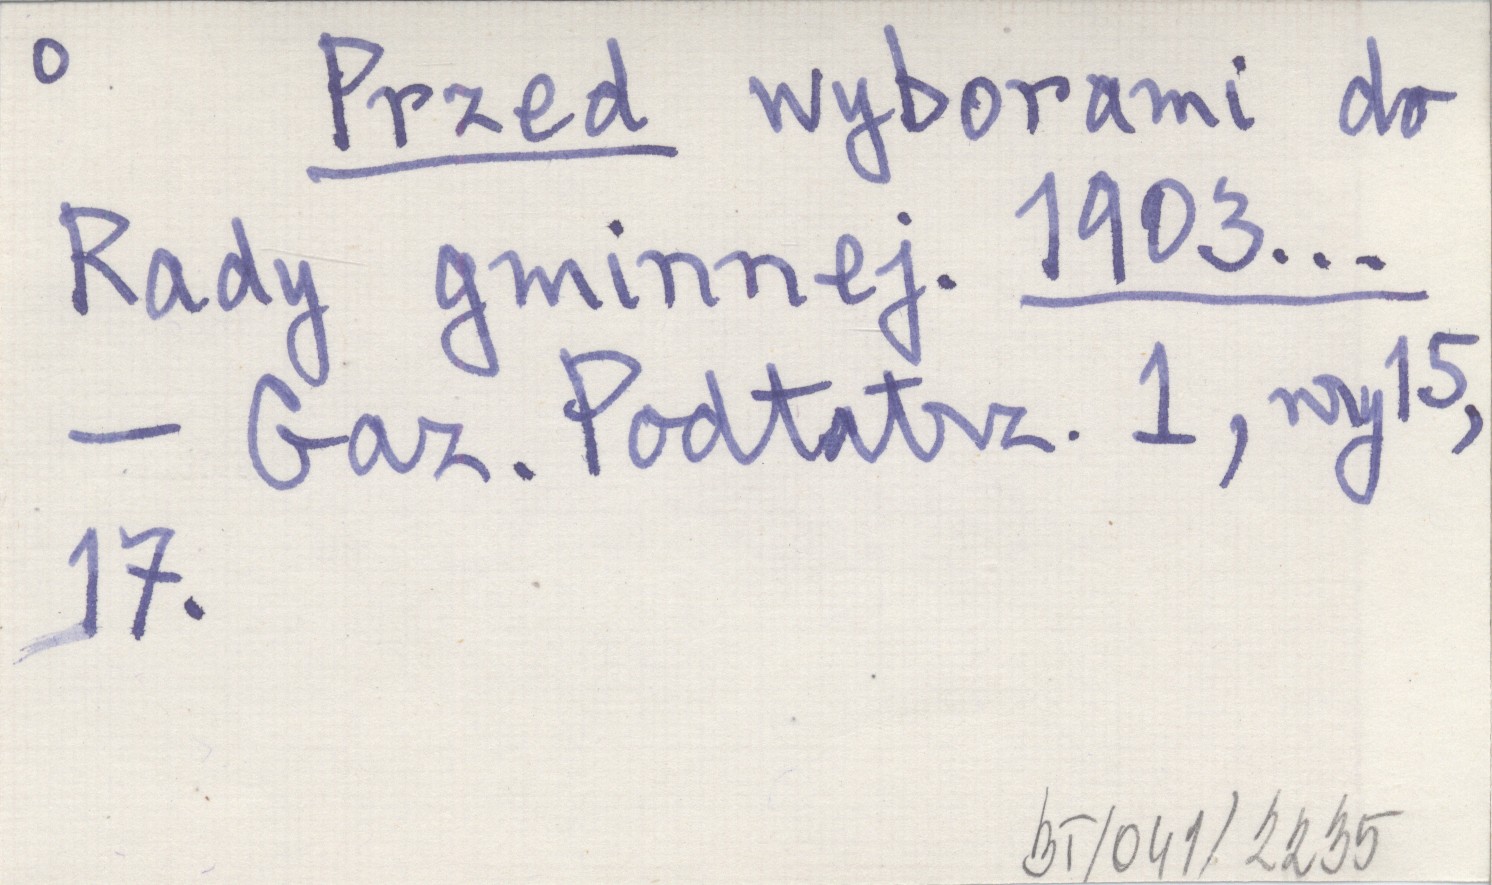 o Przed wyborami do
Rady gminnej. 1903...
— Gaz. Podtatrz. 1, wy 15,
17.
BT/041/2235